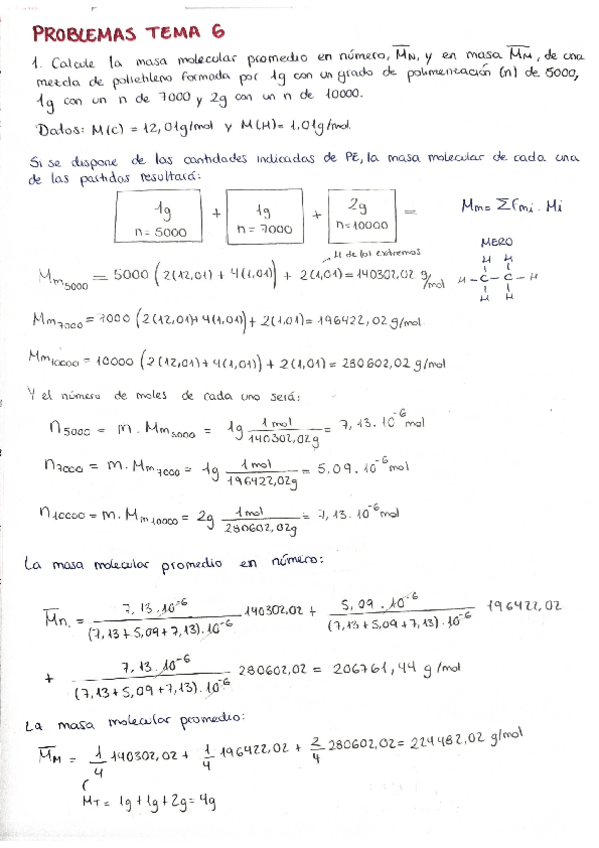 PROBLEMAS TEMA 6
1. Calcule la masa molecular promedio en número, M̅N, y en masa M̅M, de una
mezcla de polietileno formada por 1g con un grado de polimerización (n) de 5000,
1g con un n de 7000 y 2g con un n de 10000.
Datos: M(C) = 12,01g/mol y M(H)= 1,01g/mol
Si se dispone de las cantidades indicadas de PE, la masa molecular de cada una
de las partidas resultará:
1g n = 5000 + 1g n = 7000 + 2g n=10000 = Mm= Σfmi . Mi
H de los extremos
MERO
H H
H - C - C - H
H H
Mm5000 = 5000 (2(12,01) + 4(1,01)) + 2(1,01) = 140302,02 g/mol
Mm7000 = 7000 (2(12,01)+4(1,01)) + 2(1,01) = 196422,02 g/mol
Mm10000 = 10000 (2(12,01)+4(1,01)) + 2(1,01) = 280602,02 g/mol
Y el número de moles de cada uno será:
n5000 = m . Mm5000 = 1g 1mol/140302,02g = 7,13 . 10^-6 mol
n7000 = m . Mm7000 = 1g 1mol/196422,02g = 5,09 . 10^-6 mol
n10000 = m . Mm10000 = 2g 1mol/280602,02g = 7,13 . 10^-6 mol
La masa molecular promedio en número:
M̅n = 7,13 . 10^-6/(7,13+5,09+7,13).10^-6 140302,02 + 5,09 . 10^-6/(7,13+5,09+7,13).10^-6 196422,02
+ 7,13 . 10^-6/(7,13+5,09+7,13).10^-6 280602,02 = 206761,44 g/mol
La masa molecular promedio:
M̅M = 1/4 140302,02 + 1/4 196422,02 + 2/4 280602,02 = 224482,02 g/mol
MT = 1g + 1g + 2g = 4g